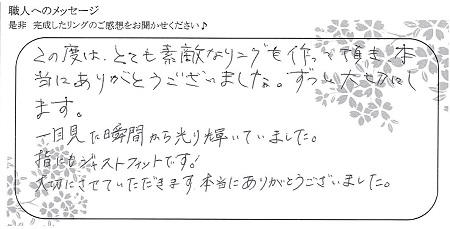 職人へのメッセージ
是非 完成したリングのご感想をお聞かせください♪
この度は、とても素敵なリングを作って頂き、本
当にありがとうございました。ずっと大切にし
ます。
一目見た瞬間から光り輝いていました。
指にもジャストフィットです!
大切にさせていただきます本当にありがとうございました。